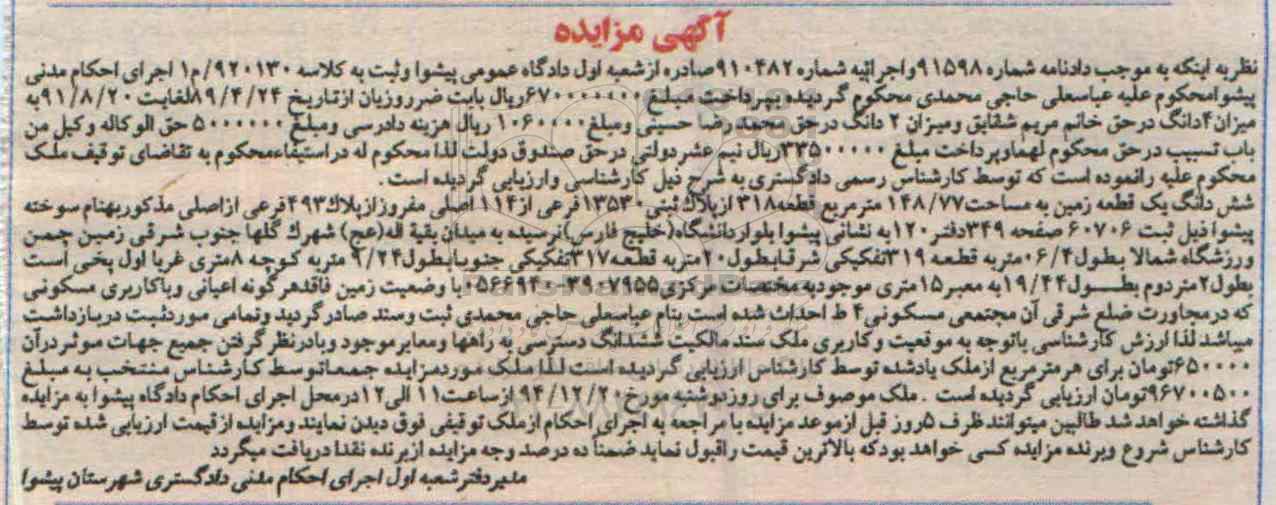 آگهی مزایده
نظر به اینکه به موجب دادنامه شماره ۹۱۵۹۸ و اجرائیه شماره ۹۱۰۴۸۲ صادره از شعبه اول دادگاه عمومی پیشوا و ثبت به کلاسه ۹۲۰۱۳۰/م۱ اجرای احکام مدنی
پیشوا محکوم علیه عباسعلی حاجی محمدی محکوم گردیده بپرداخت مبلغ ۶۷۰۰۰۰۰۰۰ ریال بابت ضرروزیان از تاریخ ۸۹/۴/۲۴ لغایت ۹۱/۸/۲۰ به
میزان ۴ دانگ درحق خانم مریم شقایق ومیزان ۲ دانگ درحق محمد رضا حسینی ومبلغ ۱۰۶۰۰۰۰۰ ریال هزینه دادرسی ومبلغ ۵۰۰۰۰۰۰ حق الوکاله وکیل من
باب تسبیب درحق محکوم لهماوپرداخت مبلغ ۳۳۵۰۰۰۰۰ ریال نیم عشر دولتی درحق صندوق دولت لذا محکوم له دراستیفاءمحکوم به تقاضای توقیف ملک
محکوم علیه رانموده است که توسط کارشناس رسمی دادگستری به شرح ذیل کارشناسی وارزیابی گردیده است.
شش دانگ یک قطعه زمین به مساحت ۱۴۸/۷۷ مترمربع قطعه ۳۱۸ ازپلاک ثبتی ۱۳۵۳۰ فرعی از ۱۱۴ اصلی مفروزازپلاک ۴۹۳ فرعی ازاصلی مذکوربهنام سوخته
پیشوا ذیل ثبت ۶۰۷۰۶ صفحه ۳۴۹ دفتر ۱۲۰ به نشانی پیشوا بلوار دانشگاه (خلیج فارس) نرسیده به میدان بقیة اله (عج) شهرک گلها جنوب شرقی زمین چمن
ورزشگاه شمالا بطول ۰۶/۴ متربه قطعه ۳۱۹ تفکیکی شرقابطول ۲۰ متربه قطعه ۳۱۷ تفکیکی جنوبابطول ۹/۲۴ متربه کوچه ۸ متری غربا اول پخی است
بطول ۲ متر دوم بطول ۱۹/۴۴ به معبر ۱۵ متری موجودبه مختصات مرکزی ۳۹۰۷۹۵۵-۰۵۶۶۹۴۰ با وضعیت زمین فاقدهرگونه اعیانی وباکاربری مسکونی
که درمجاورت ضلع شرقی آن مجتمعی مسکونی ۴ ط احداث شده است بنام عباسعلی حاجی محمدی ثبت وسند صادرگردید وتمامی موردثبت دربازداشت
میباشد لذا ارزش کارشناسی باتوجه به موقعیت وکاربری ملک سند مالکیت ششدانگ دسترسی به راهها ومعابرموجود وبادرنظر گرفتن جمیع جهات موثردرآن
۶۵۰۰۰۰ تومان برای هرمترمربع ازملک یادشده توسط کارشناس ارزیابی گردیده است لذا ملک موردمزایده جمعاتوسط کارشناس منتخب به مبلغ
۹۶۷۰۰۵۰۰ تومان ارزیابی گردیده است . ملک موصوف برای روزدوشنبه مورخ ۹۴/۱۲/۲۰ ازساعت ۱۱ الی ۱۲ درمحل اجرای احکام دادگاه پیشوا به مزایده
گذاشته خواهد شد طالبین میتوانند ظرف ۵ روز قبل ازموعد مزایده با مراجعه به اجرای احکام ازملک توقیفی فوق دیدن نمایند ومزایده ازقیمت ارزیابی شده توسط
کارشناس شروع وبرنده مزایده کسی خواهد بودکه بالاترین قیمت راقبول نماید ضمنا ده درصد وجه مزایده ازبرنده نقدا دریافت میگردد
مدیردفترشعبه اول اجرای احکام مدنی دادگستری شهرستان پیشوا